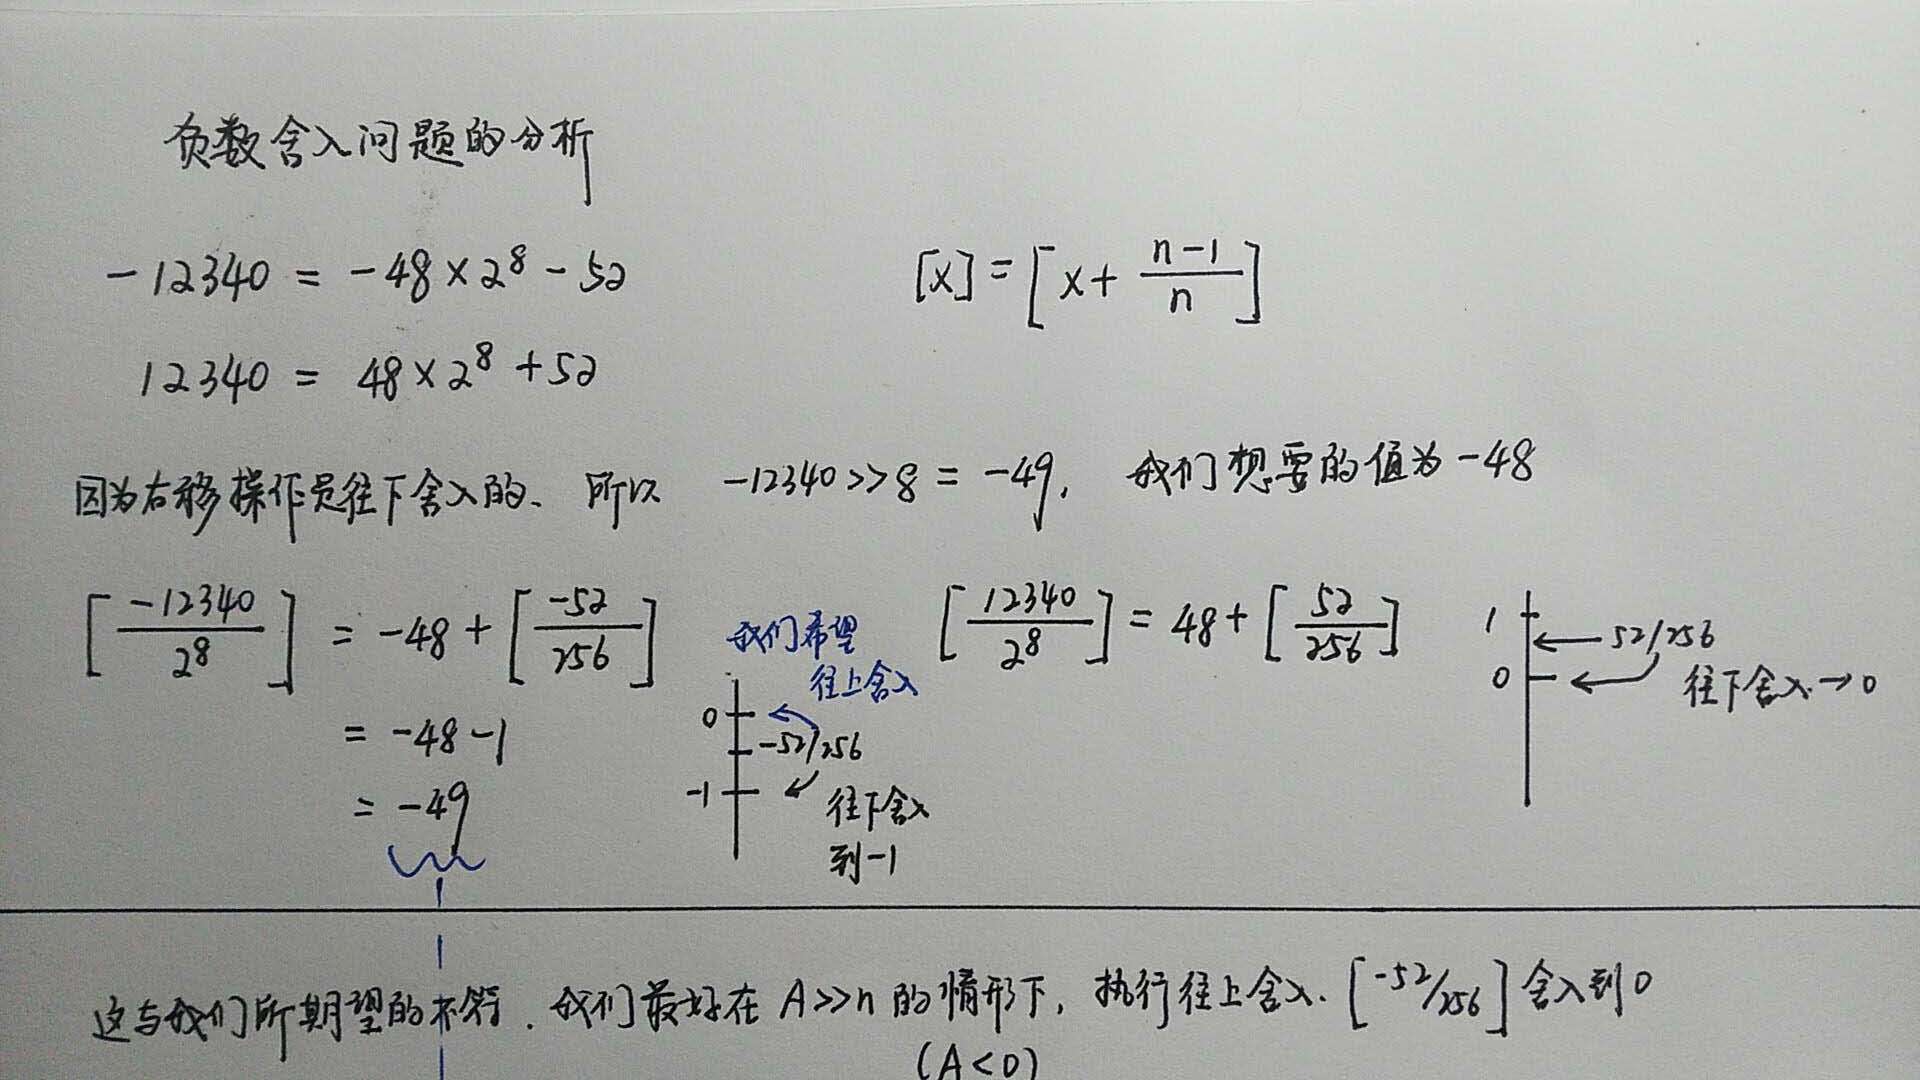 负数舍入问题的分析
-12340 = -48×2⁸ - 52
[x] = [x + (n-1)/n]
12340 = 48×2⁸ + 52
因为右移操作是往下舍入的、所以 -12340>>8 = -49, 我们想要的值为 -48
[-12340/2⁸] = -48 + [-52/256]
= -48 - 1
= -49
我们希望
往上舍入
0
-52/256
-1
往下舍入
到 -1
[12340/2⁸] = 48 + [52/256]
1
52/256
0
往下舍入→0
这与我们所期望的不符. 我们最好在 A>>n 的情形下, 执行往上舍入. [-52/256] 舍入到 0
(A<0)